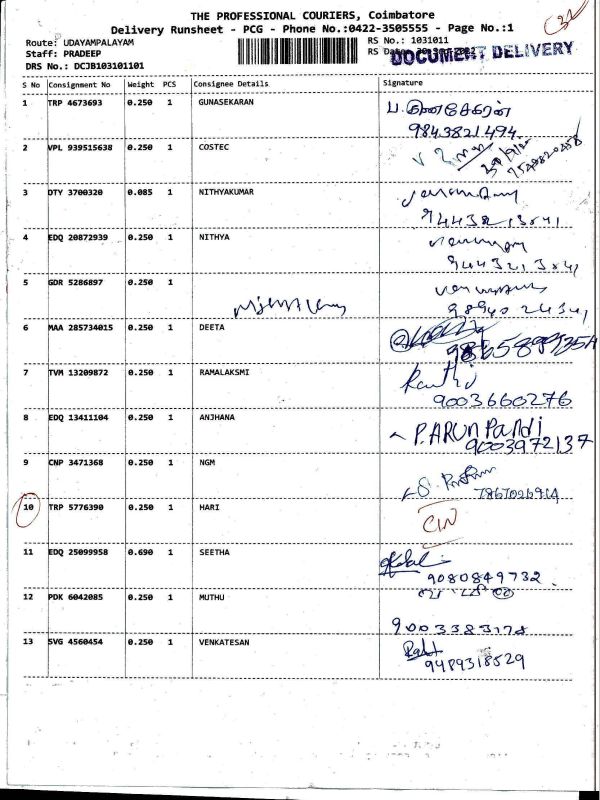 THE PROFESSIONAL COURIERS, Coimbatore
Delivery Runsheet - PCG - Phone No.:0422-3505555 - Page No.:1
Route: UDAYAMPALAYAM
RS No.: 1031011
Staff: PRADEEP
DOCUMENT DELIVERY
DRS No.: DCJB103101101
S No Consignment No Weight PCS Consignee Details Signature
1 TRP 4673693 0.250 1 GUNASEKARAN
ப. குணசேகரன்
9843821494
2 VPL 939515638 0.250 1 COSTEC
3 DTY 3700320 0.085 1 NITHYAKUMAR
9443213841
4 EDQ 20872939 0.250 1 NITHYA
9443213841
5 GDR 5286897 0.250 1
9894024341
6 MAA 285734015 0.250 1 DEETA
7 TVM 13209872 0.250 1 RAMALAKSMI
9003660276
8 EDQ 13411104 0.250 1 ANJHANA
P. ARUN Pandi
9003972137
9 CNP 3471368 0.250 1 NGM
10 TRP 5776390 0.250 1 HARI
11 EDQ 25099958 0.690 1 SEETHA
9080849732
12 PDK 6042085 0.250 1 MUTHU
9003383178
13 SVG 4560454 0.250 1 VENKATESAN
9489318529